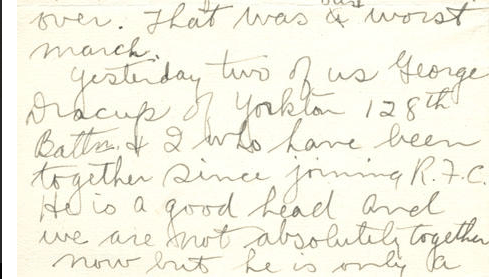 over. That was our worst
march.
Yesterday two of us George
Dracup of Yorkton 128th
Battn. & I who have been
together since joining R.F.C.
He is a good head and
we are not absolutely together
now but he is only a